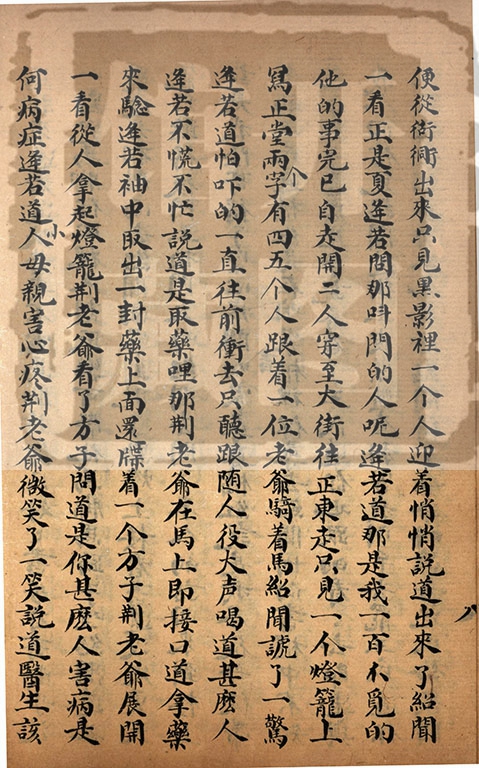 便從衚衕出來只見黒影裡一个人迎着悄悄說道出來了紹聞
一看正是夏逄若問那呌門的人呢逄若道那是我一百不覓的
他的事完已自走開二人穿至大街往正東走只見一个燈籠上
寫正堂兩个字有四五个人跟着一位老爺騎着馬紹聞諕了一驚
逄若道怕吓的一直往前衝去只聽跟随人役大声喝道甚麽人
逄若不慌不忙説道是取藥哩那荆老爺在馬上即接口道拿藥
來騐逄若袖中取出一封藥上面還牒着一个方子荆老爺展開
一看從人拿起燈籠荆老爺看了方子問道是你甚麽人害病是
何病症逄若道小人母親害心疼荆老爺微笑了一笑說道醫生該